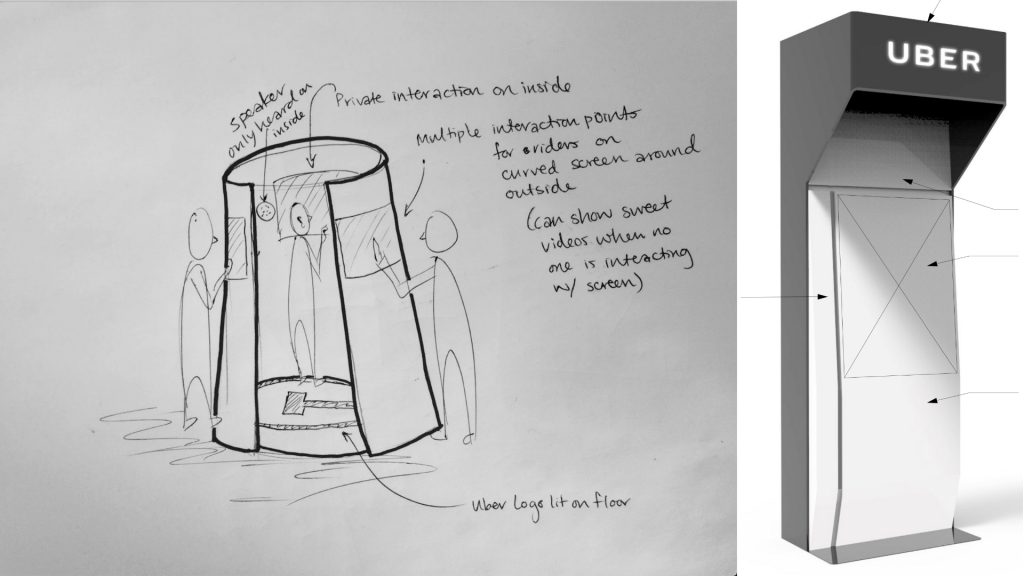 speaker
only heard on
inside
Private interaction on inside
Multiple interaction points
for riders on
curved screen around
outside
(can show sweet
videos when no
one is interacting
w/ screen)
Uber Logo lit on floor
UBER